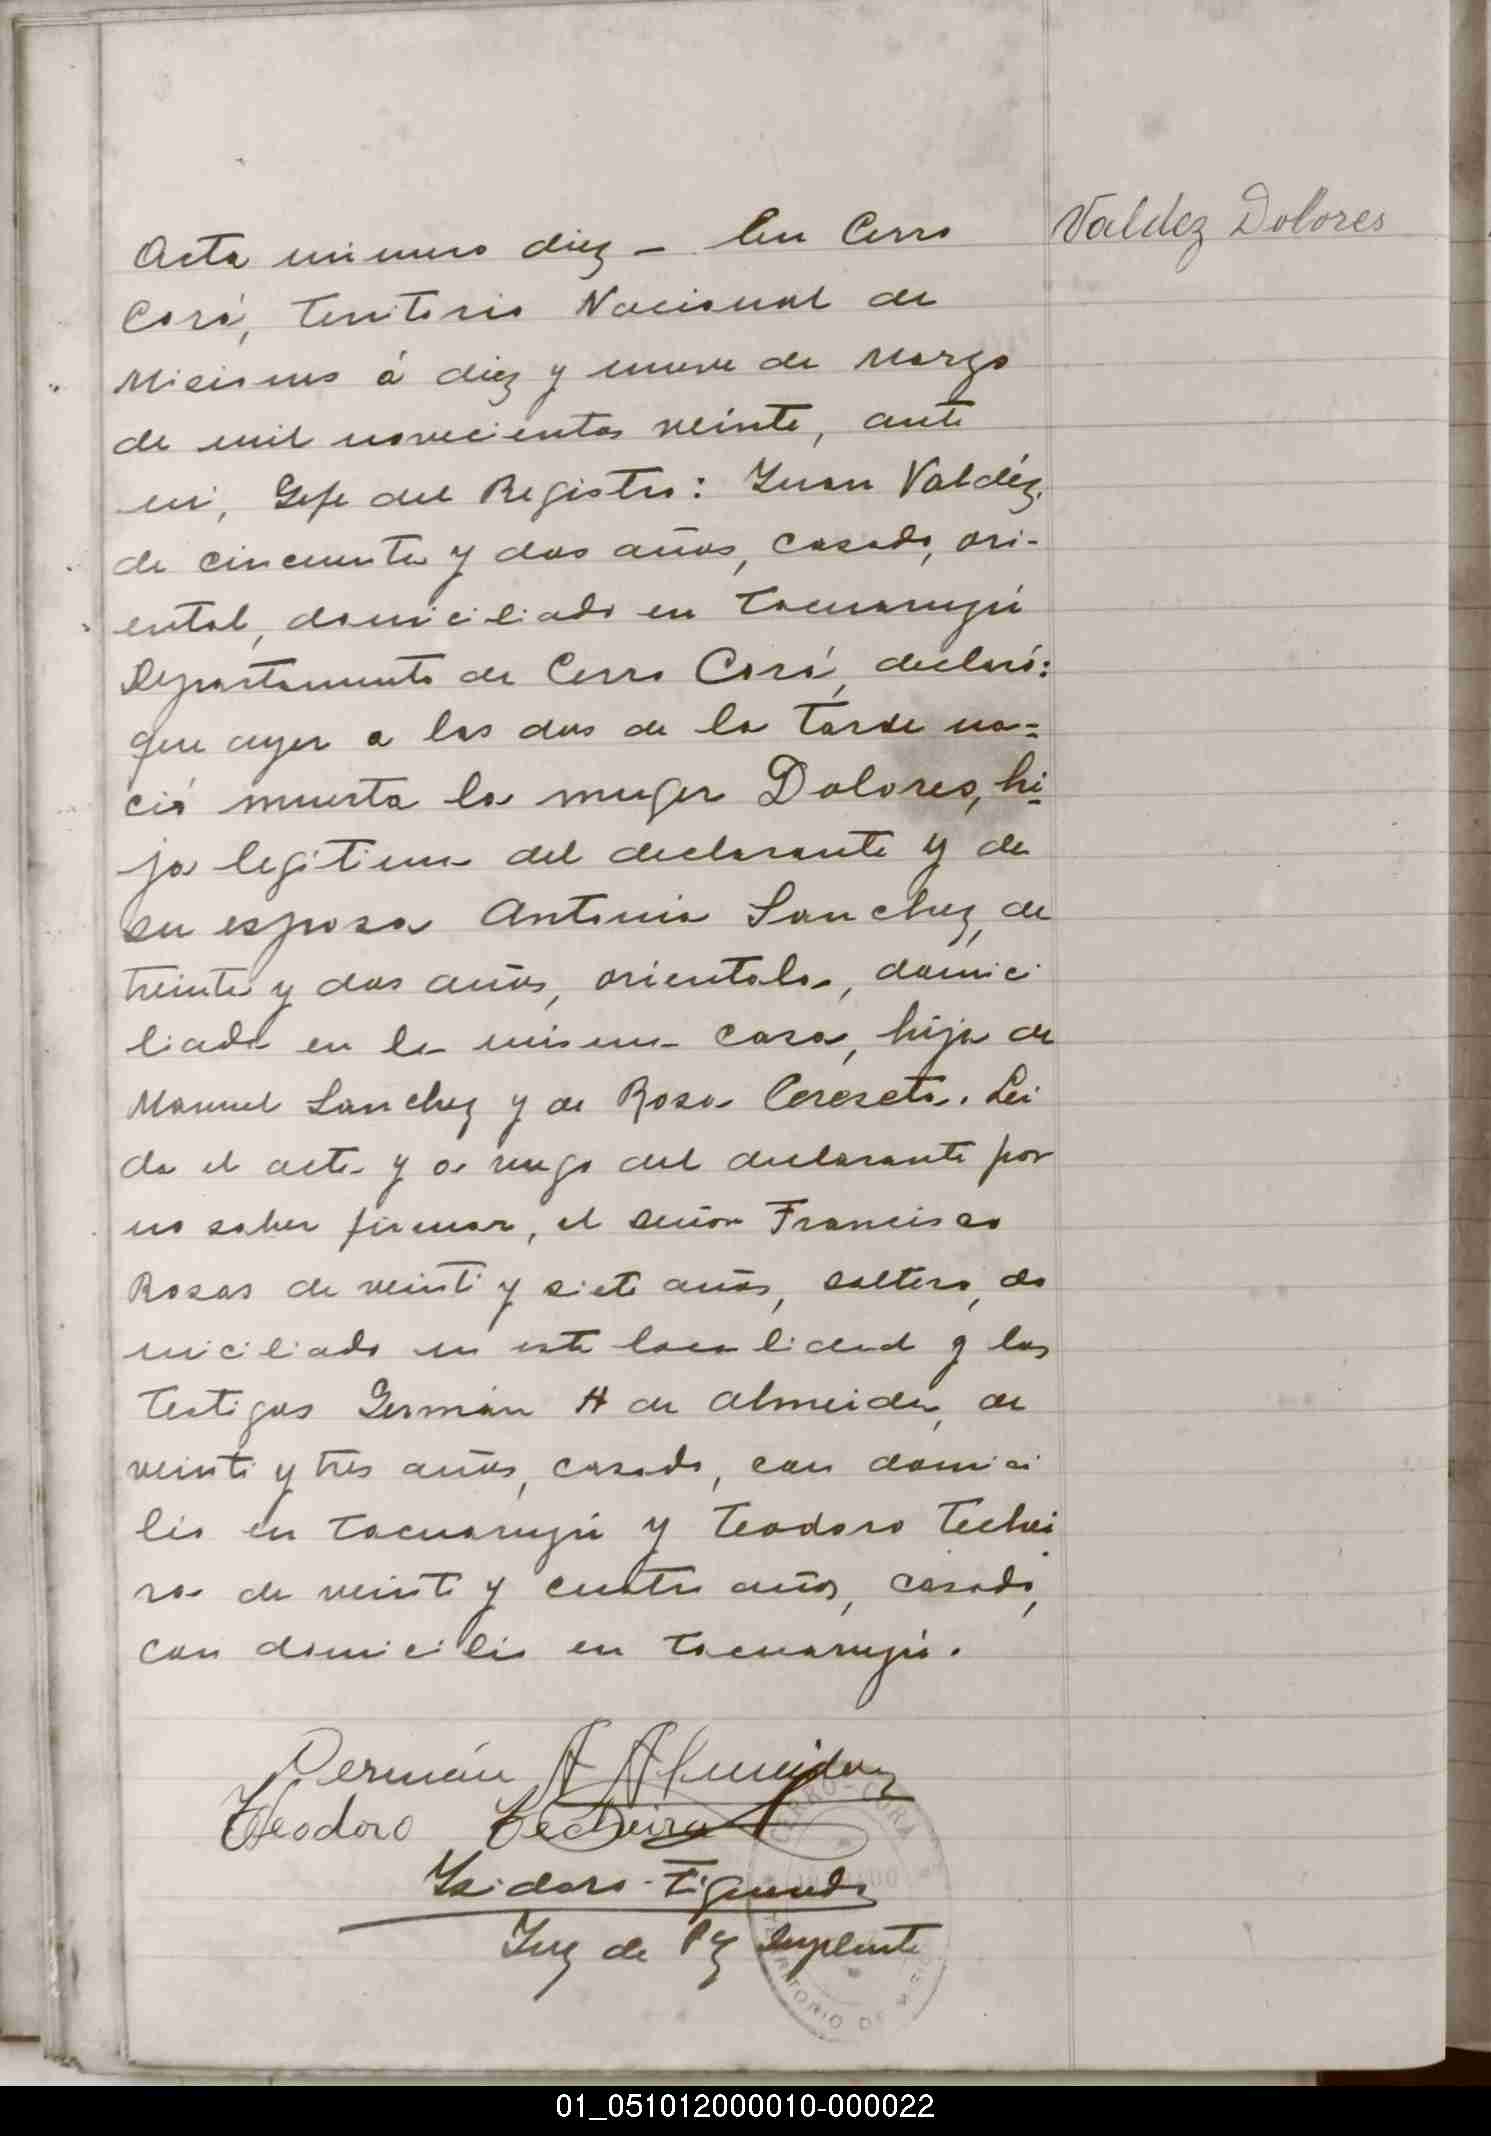 Valdez Dolores
Acta número diez - En Cerro
Corá, Territorio Nacional de
Misiones á diez y nueve de Marzo
de mil novecientos veinte, ante
mi, Gefe del Registro: Juan Valdéz,
de cincuenta y dos años, casado, ori-
ental, domiciliado en Tacuarugú
Departamento de Cerro Corá, declaró:
que ayer a las dos de la tarde na=
ció muerta la muger Dolores, hi=
ja legitima del declarante y de
su esposa Antonia Sanchez, de
treinta y dos años, oriental, domici
liada en la misma casa, hija de
Manuel Sanchez y de Rosa Cereseto. Lei
da el acta y a ruego del declarante por
no saber firmar, el señor Francisco
Rosas de veinti y siete años, soltero, do
miciliado en esta localidad y los
testigos Germán H de Almeida, de
veinti y tres años, casado, con domici
lio en Tacuarugú y Teodoro Techei
ra de veinte y cuatro años, casado,
con domicilio en Tacuarugú.
Germán A Almeida
Teodoro Techeira
Isidoro Figueredo
Juez de Paz Suplente
CERRO-CORA
JUZGADO
TERRITORIO DE MISIONES
01_051012000010-000022